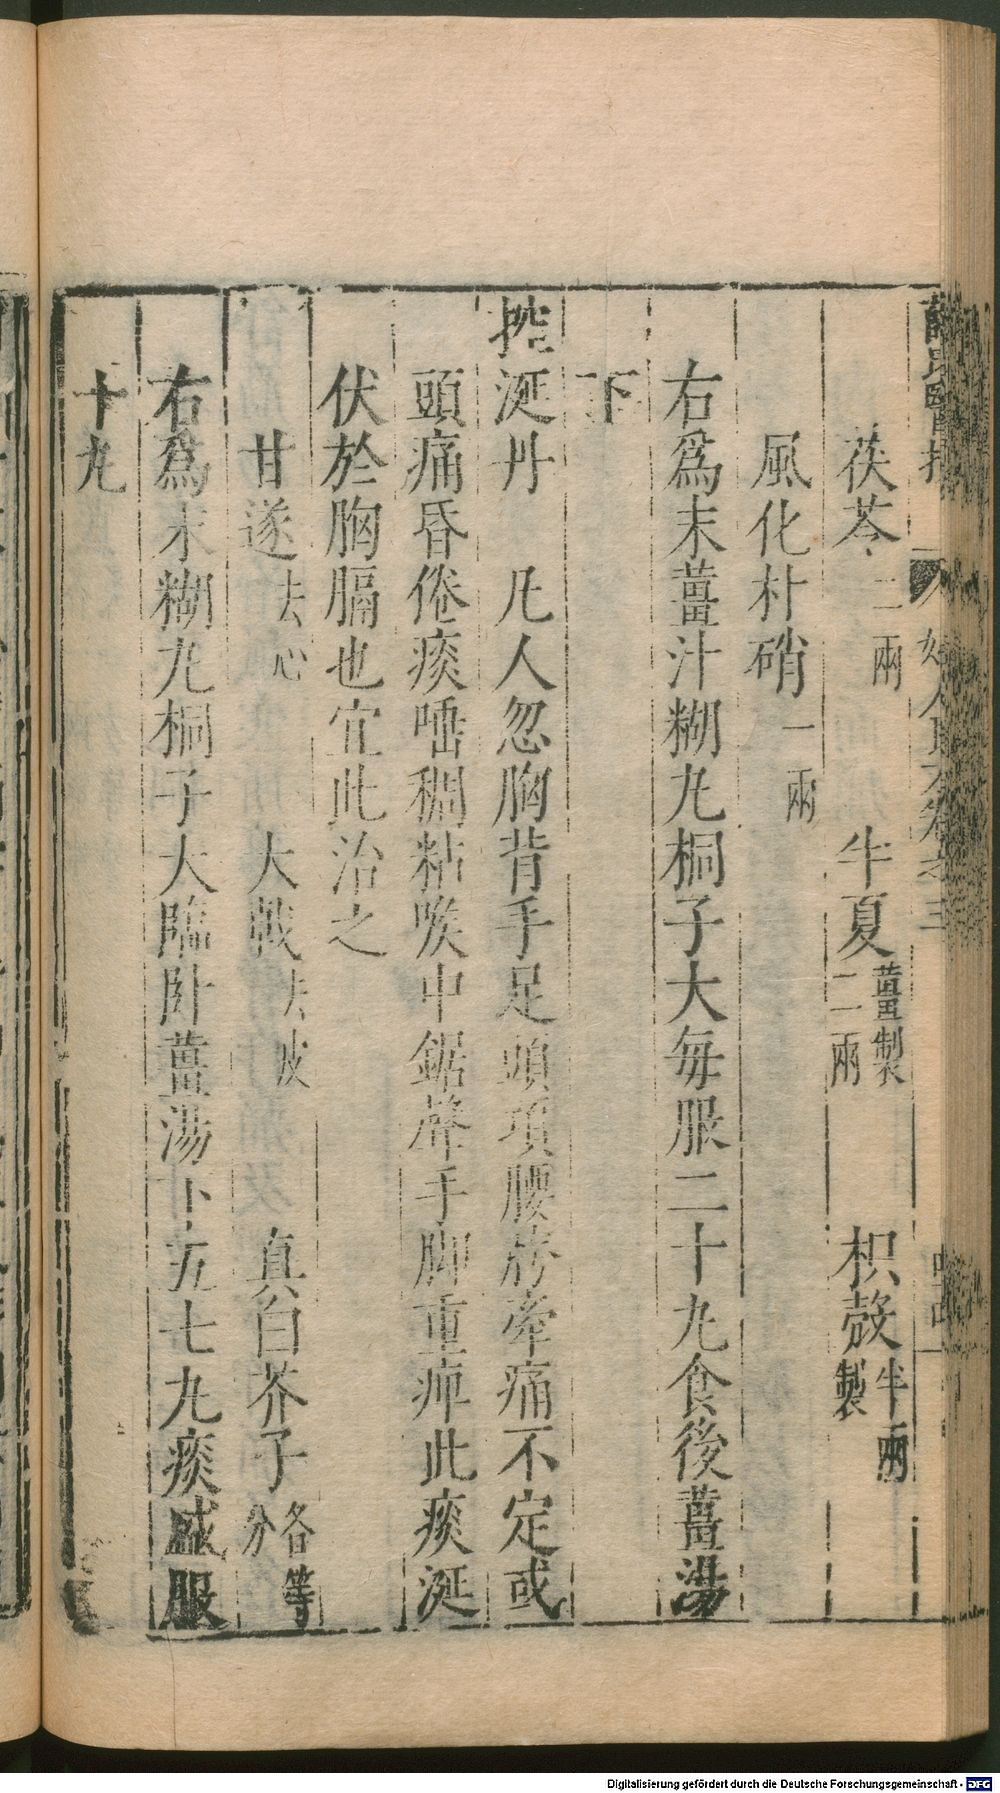 茯苓二兩 半夏薑製二兩 枳殼半兩製
風化朴硝一兩
右爲末薑汁糊丸桐子大每服二十丸食後薑湯
下
控涎丹 凡人忽胸背手足頭項腰胯牽痛不定或
頭痛昏倦痰唾稠粘喉中鋸聲手脚重痺此痰涎
伏於胸膈也宜此治之
甘遂去心 大戟去皮 真白芥子各等分
右爲末糊丸桐子大臨卧薑湯下五七丸痰盛服
十丸
Digitalisierung gefördert durch die Deutsche Forschungsgemeinschaft - DFG